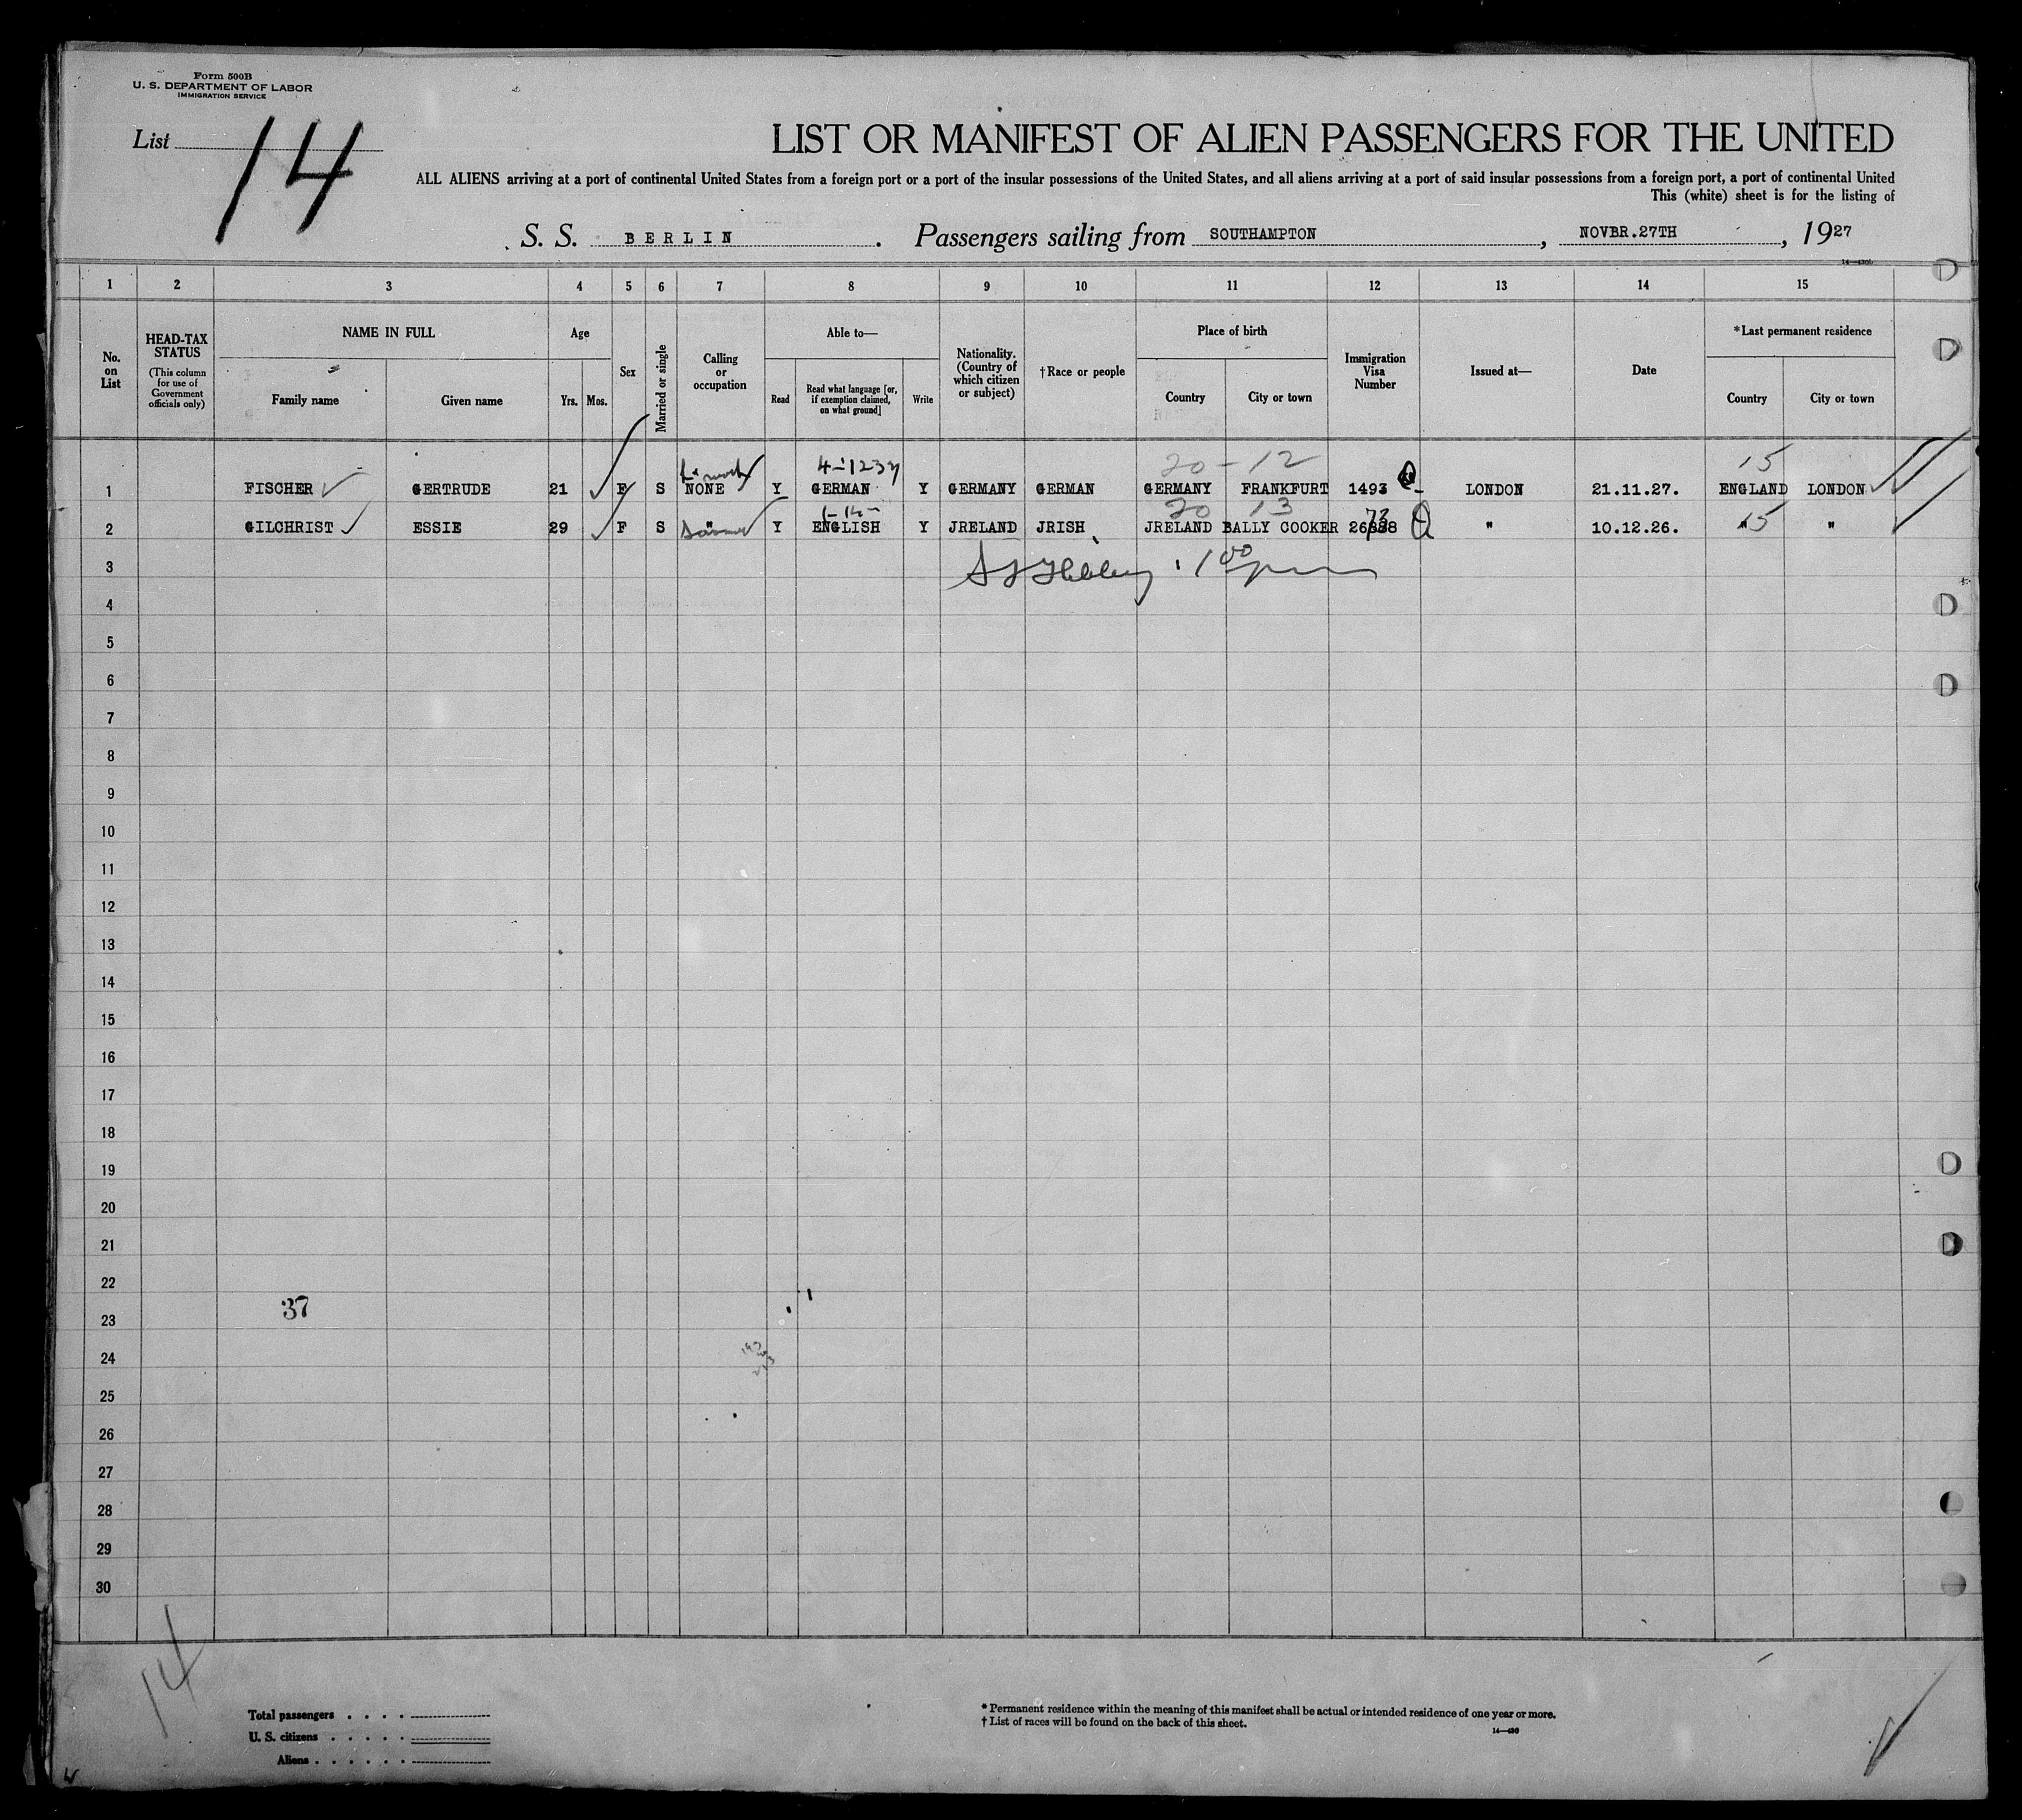 Form 500B
U. S. DEPARTMENT OF LABOR
IMMIGRATION SERVICE
List 14
LIST OR MANIFEST OF ALIEN PASSENGERS FOR THE UNITED
ALL ALIENS arriving at a port of continental United States from a foreign port or a port of the insular possessions of the United States, and all aliens arriving at a port of said insular possessions from a foreign port, a port of continental United
This (white) sheet is for the listing of
S. S. BERLIN . Passengers sailing from SOUTHAMPTON , NOVBR.27TH , 1927
1 2 3 4 5 6 7 8 9 10 11 12 13 14 15
No. on List
HEAD-TAX STATUS (This column for use of Government officials only)
NAME IN FULL
Family name Given name
Age
Yrs. Mos.
Sex
Married or single
Calling or occupation
Able to—
Read
Read what language [or, if exemption claimed, on what ground]
Write
Nationality. (Country of which citizen or subject)
†Race or people
Place of birth
Country City or town
Immigration Visa Number
Issued at—
Date
*Last permanent residence
Country City or town
20-12 15
1 FISCHER GERTRUDE 21 F S NONE Y GERMAN Y GERMANY GERMAN GERMANY FRANKFURT 1493 LONDON 21.11.27. ENGLAND LONDON
20 13 15
2 GILCHRIST ESSIE 29 F S " Y ENGLISH Y JRELAND JRISH JRELAND BALLY COOKER " 10.12.26. " "
3
4
5
6
7
8
9
10
11
12
13
14
15
16
17
18
19
20
21
22
37
23
24
25
26
27
28
29
30
14
Total passengers
U. S. citizens
Aliens
* Permanent residence within the meaning of this manifest shall be actual or intended residence of one year or more.
† List of races will be found on the back of this sheet.